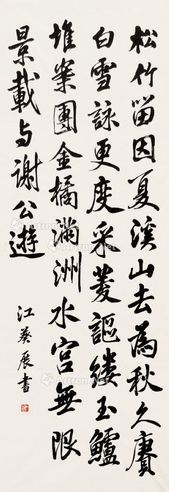 松竹留因夏溪山去為秋久賡
白雪詠更度采菱謳縷玉鱸
堆案團金橘滿洲水宮無限
景載与謝公遊
江展書